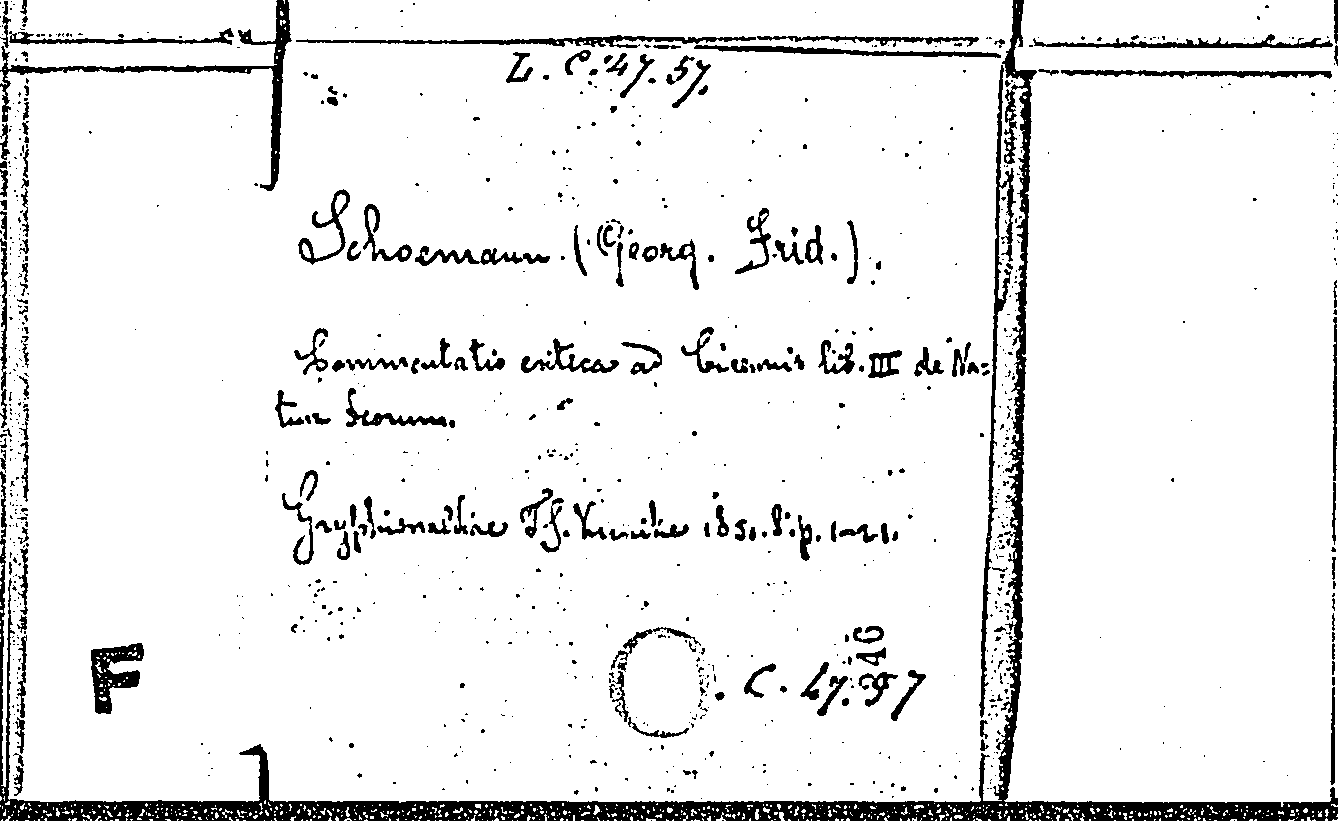 L. C. 47. 57.
Schoemann. (Georg. Frid.).
Commentatio critica ad Ciceronis lib. III de Na-
tura deorum.
Gryphiswaldiae Tf. Kunike 185 . p. 1-21.
F
C. 47. 57
46